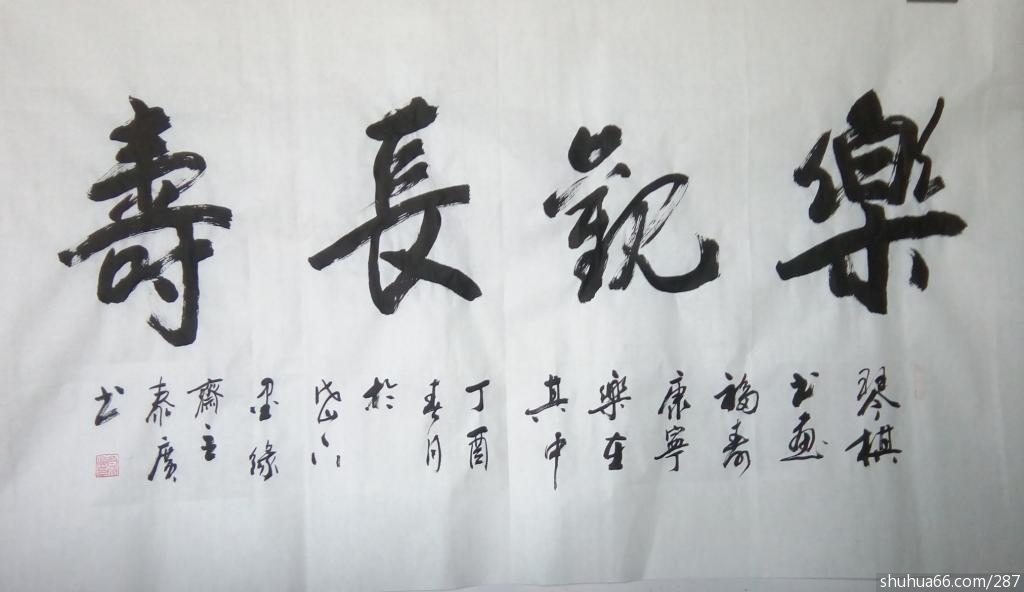 樂觀長壽
琴棋
书画
福寿
康寧
樂在
其中
丁酉
春月
於
岱下
墨緣
齋主
泰廣
书
shuhua66.com/287